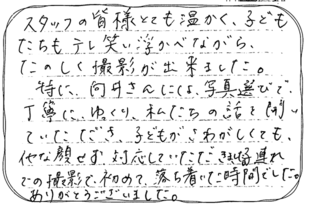 スタッフの皆様とても温かく、子ども
たちもテレ笑い浮かべながら、
たのしく撮影が出来ました。
特に、向井さんには、写真選びで
丁寧に、ゆっくり、私たちの話を聞い
ていただき、子どもがさわがしくても、
他な顔せず対応していただき子連れ
での撮影で初めて、落ち着いた時間でした。
ありがとうございました。